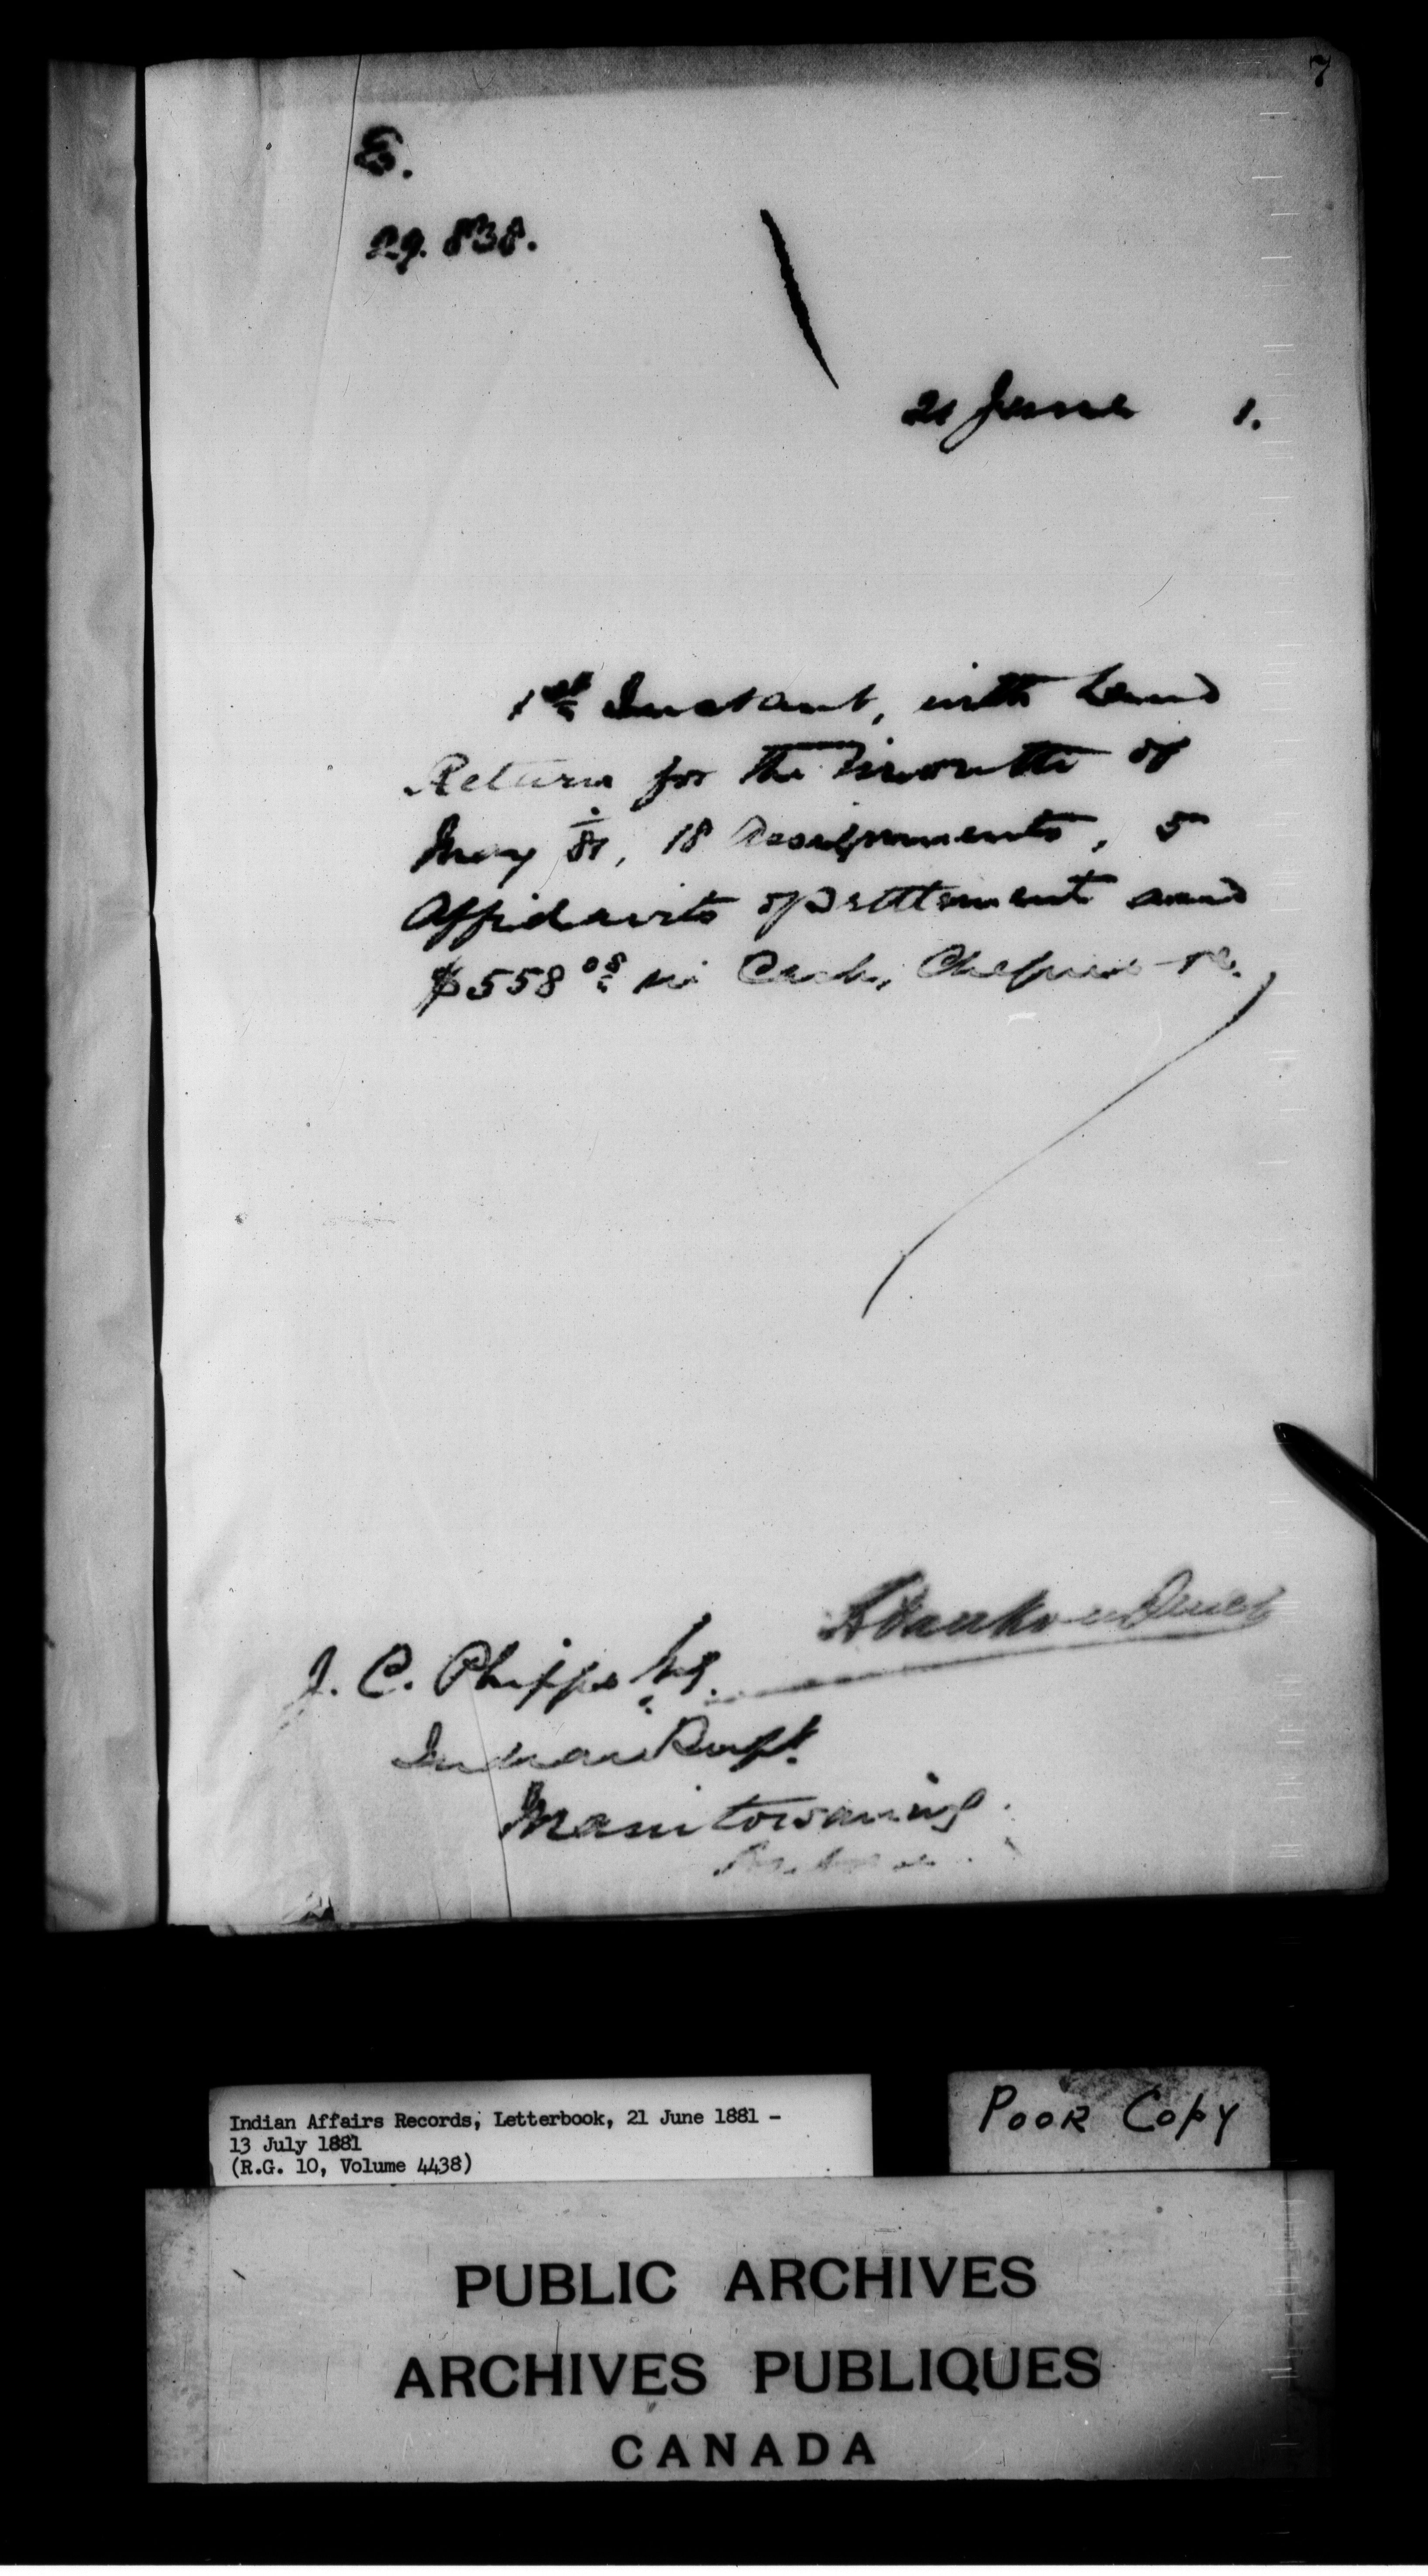 7
E.
29.838.
21 June 1.
1st Instant, with Land
Return for the month of
May /81, 18 Assignments, 5
Affidavits of Settlement and
$558.08 in Cash, Cheques &c.
J. C. Phipps Esq.
Indian Supt.
Manitowaning
Indian Affairs Records, Letterbook, 21 June 1881 -
13 July 1881
(R.G. 10, Volume 4438)
POOR COPY
PUBLIC ARCHIVES
ARCHIVES PUBLIQUES
CANADA